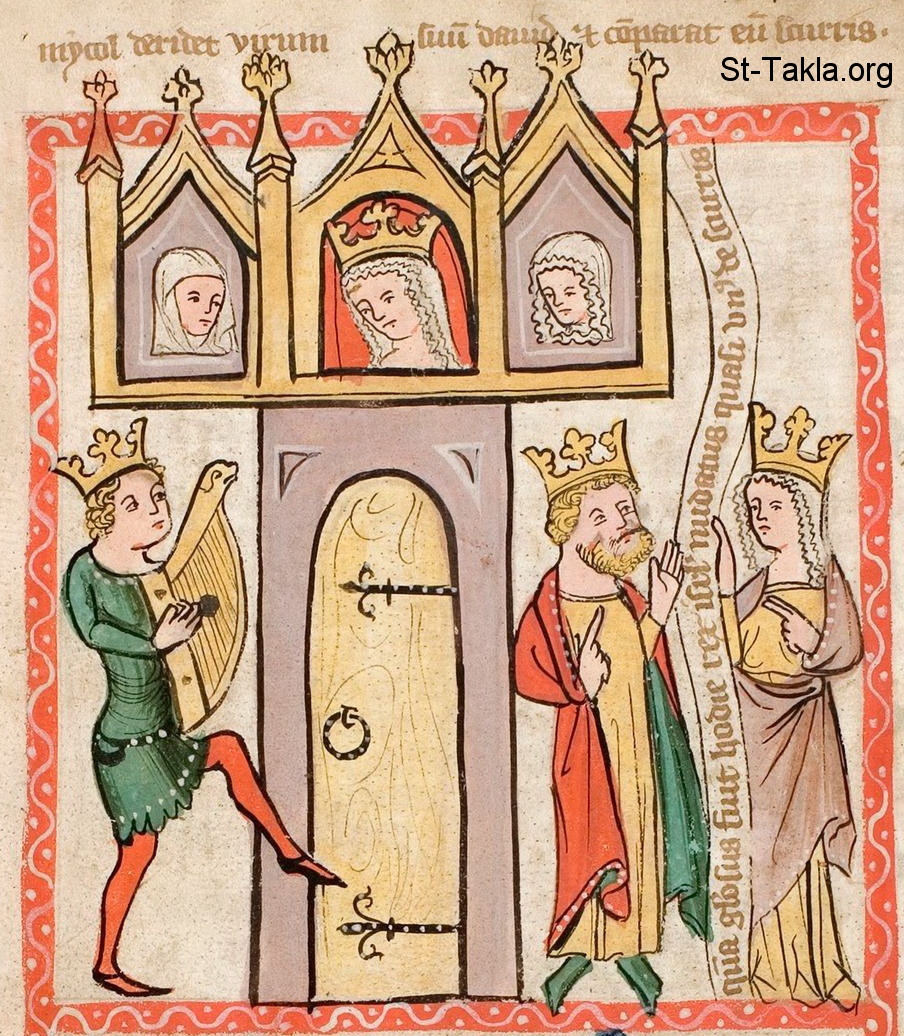 mycol deridet virum suū dauid ⁊ cōparat eū scurris.
St-Takla.org
qm̄ glōsus fuit hodie rex isrl̄ nudatus quasi vn᷒ de scurris